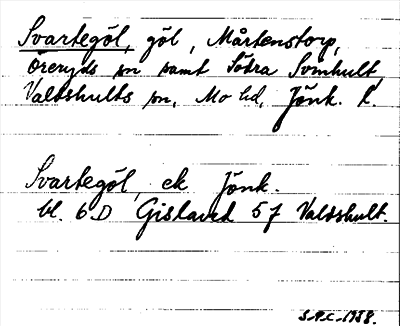 Svartegöl, göl, Mårtenstorp,
Öreryds sn samt Södra Svinhult,
Valdshults sn, Mo hd, Jönk. l.
Svartegöl, ek Jönk.
bl. 6D Gislaved 5f Valdshult.
S.P.C. 1938.